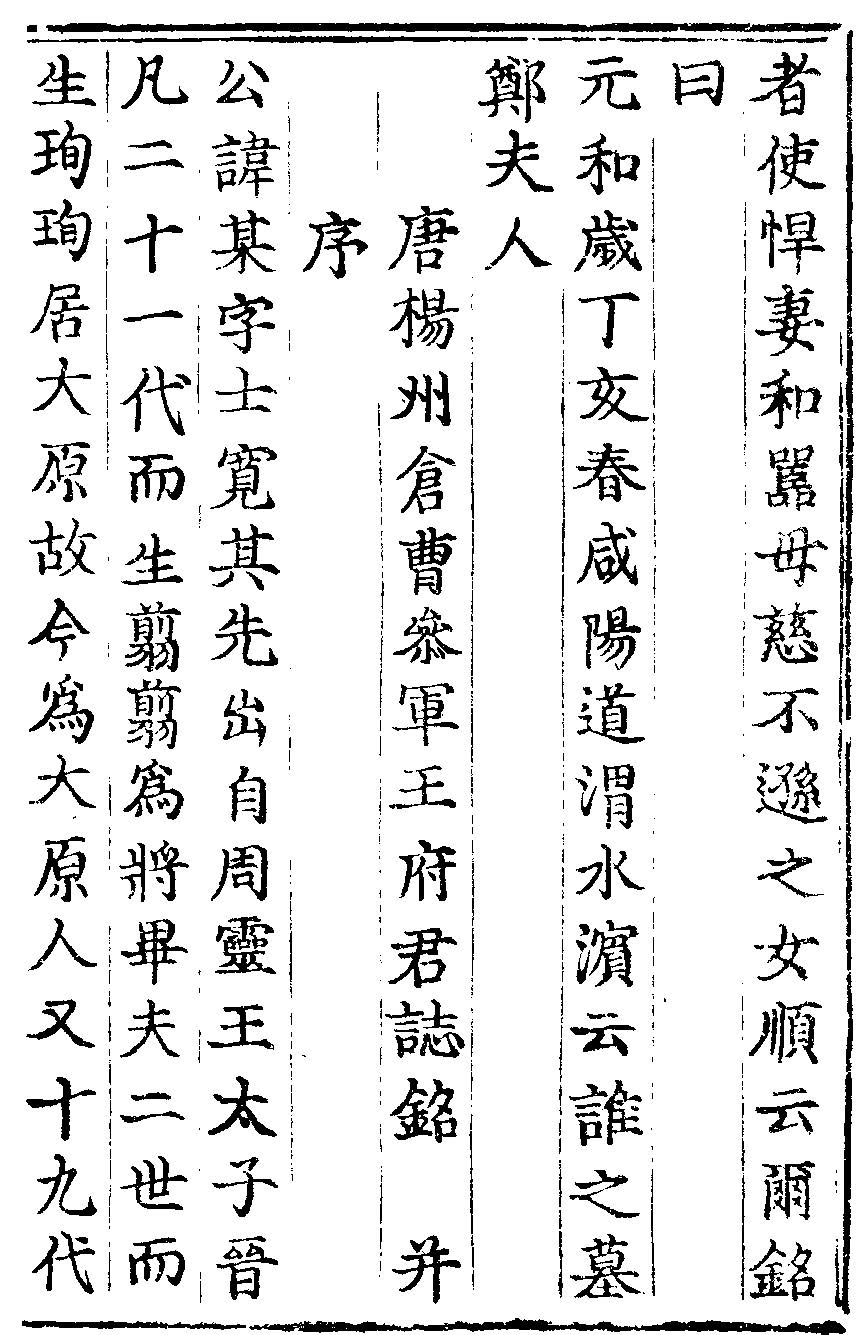 者使悍妻和嚚母慈不遜之女順云爾銘
曰
元和歲丁亥春咸陽道渭水濵云誰之墓
鄭夫人
唐楊州倉曹叅軍王府君誌銘 并
序
公諱某字士寛其先出自周靈王太子晉
凡二十一代而生翦翦爲將畢夫二世而
生珣珣居大原故今爲大原人又十九代